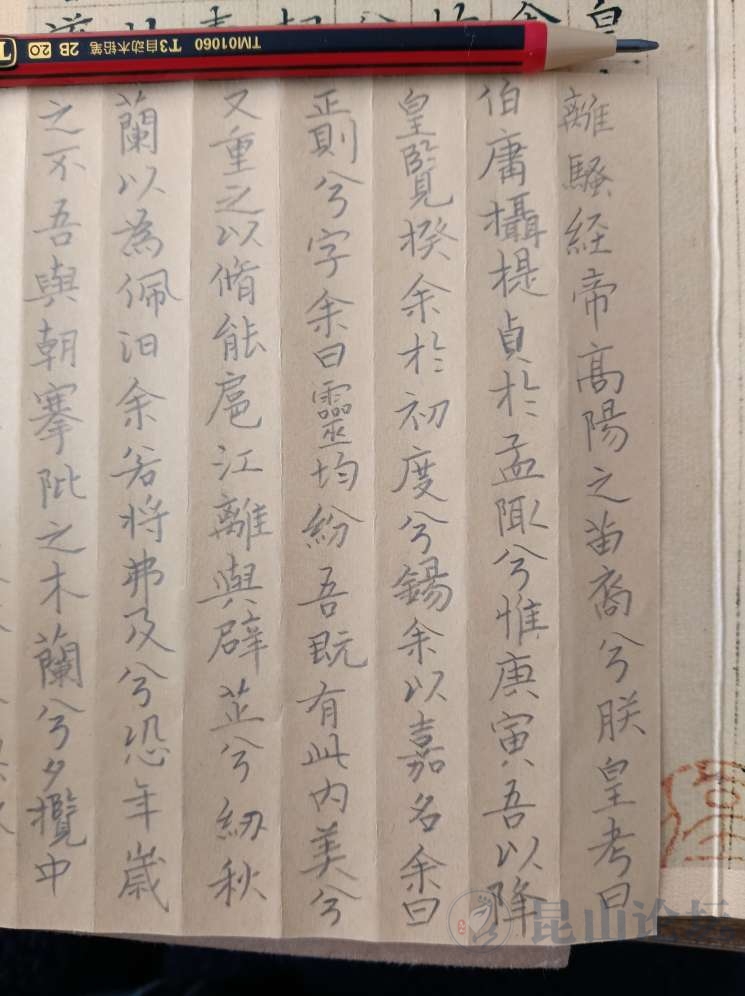 T3自动木铅笔 2B 2.0
TM01060
離騷経帝高陽之苗裔兮朕皇考曰
伯庸攝提貞於孟陬兮惟庚寅吾以降
皇覽揆余於初度兮錫余以嘉名余曰
正則兮字余曰靈均紛吾既有此内美兮
又重之以脩能扈江離與辟芷兮紉秋
蘭以為佩汩余若将弗及兮恐年歲
之不吾與朝搴阰之木蘭兮夕攬中
昆山论坛